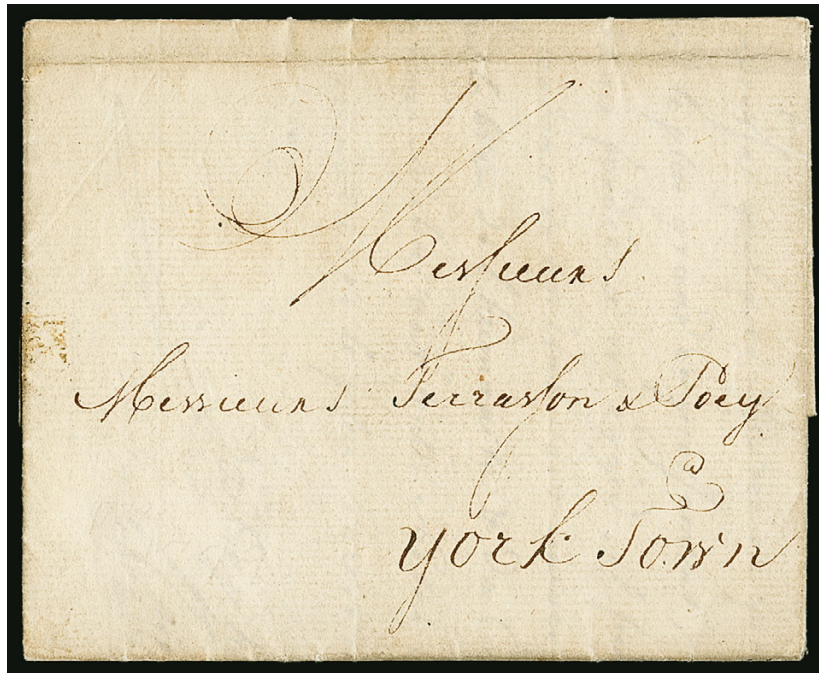 Messieurs
Messieurs Terrasson & Poey
a
york Town